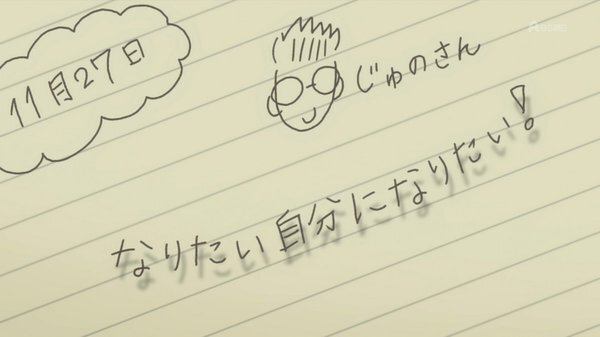 11月27日
じゅのさん
なりたい自分になりたい!